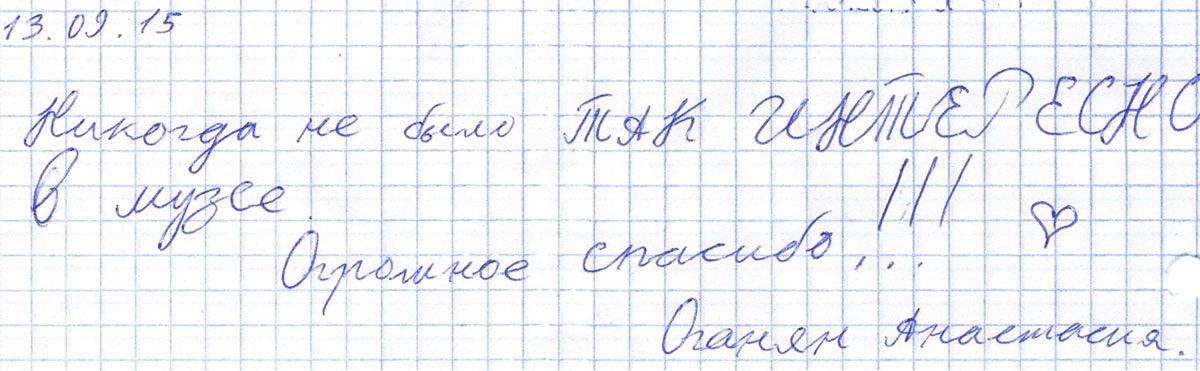 13.09.15
Никогда не было ТАК ИНТЕРЕСНО
в музее.
Огромное спасибо!!!
Оганян Анастасия.